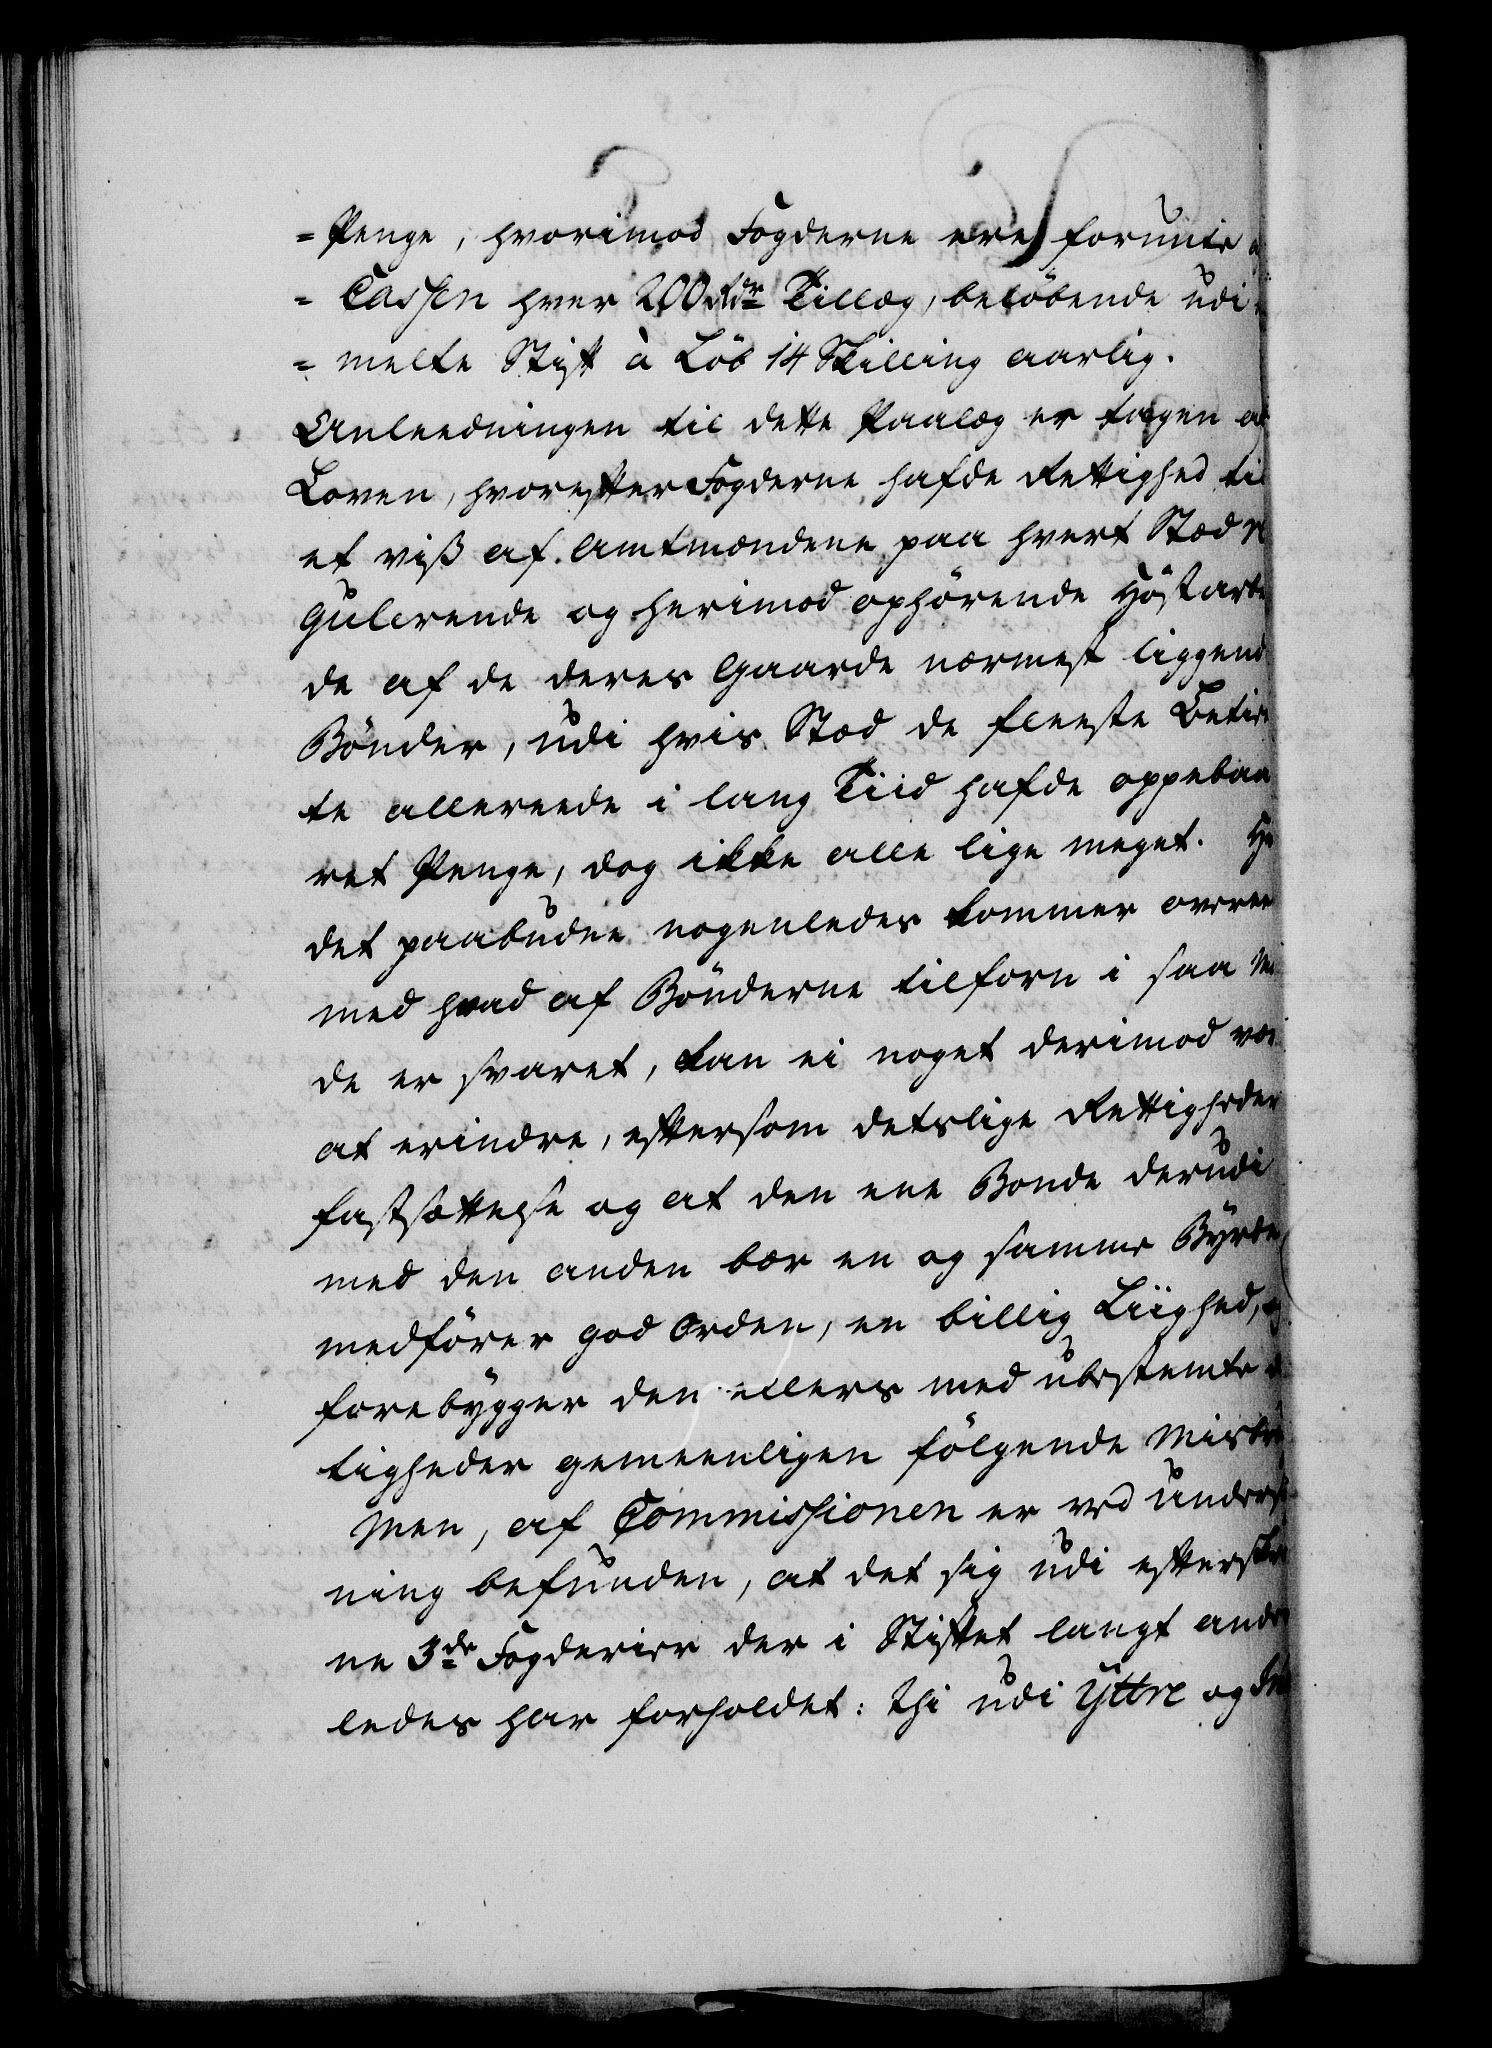 = Penge, hvorimod Fogderne ere forunte
= Cassen hver 200 Rdr Tillæg, beløbende udi
= melte Stift à Løb 14 Skilling aarlig.
Anleedningen til dette Paalæg er tagen af
Loven, hvorefter Fogderne hafde Rettighed til
et viss af Amtmændene paa hvert Stæd re
gulerende og herimod ophørende Høstarbei
de af de deres Gaarde nærmest liggend
Bønder, udi hvis Stæd de fleeste Betien
te allereede i lang Tiid hafde oppebaa
ret Penge, dog ikke alle lige meget.
det paabudne nogenledes kommer overee
med hvad af Bønderne tilforn i saa Maa
de er svaret, kan ei noget derimod væ
at erindre, eftersom deslige Rettigheder
fastsættelse og at den ene Bonde derudi
med den anden bær en og samme Byrde
medfører god Orden, en billig Liighed, og
forebygger den ellers med ubestemte
tigheder gemeenligen følgende Misbru
Men, af Commissionen er ved undersø
ning befunden, at det sig udi efterskre
ne 3de Fogderier der i Stiftet langt ander
ledes har forholdet: thi udi Yttre og